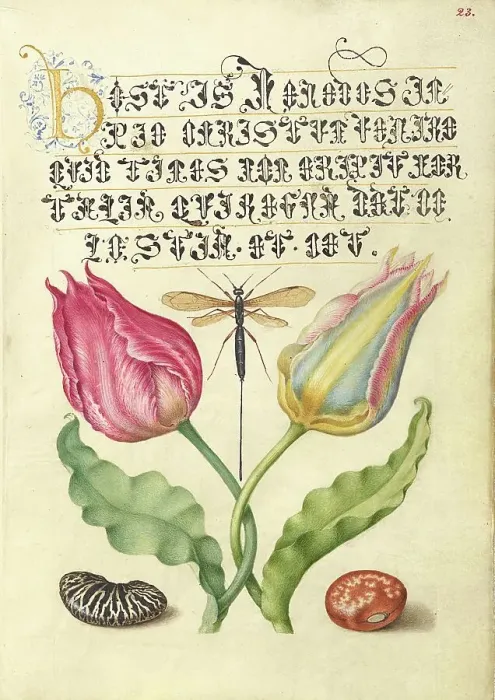 23.
HOSTIS HERODES IM
PIE CHRISTVM VENIRE
QVID TIMES NON ERIPIT MOR
TALIA QVI REGNA DAT CE
LESTIA·ET·CET.